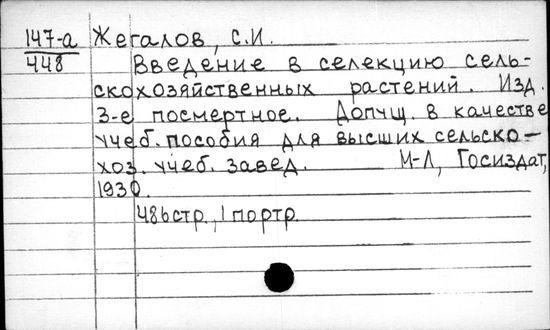 147-а Жегалов, С.И.
448 Введение в селекцию сель-
скохозяйственных растений. Изд.
3-е посмертное. Допущ. в качестве
учеб. пособия для высших сельско-
хоз. учеб. завед. М-Л, Госиздат,
1930.
486 стр., 1 портр.